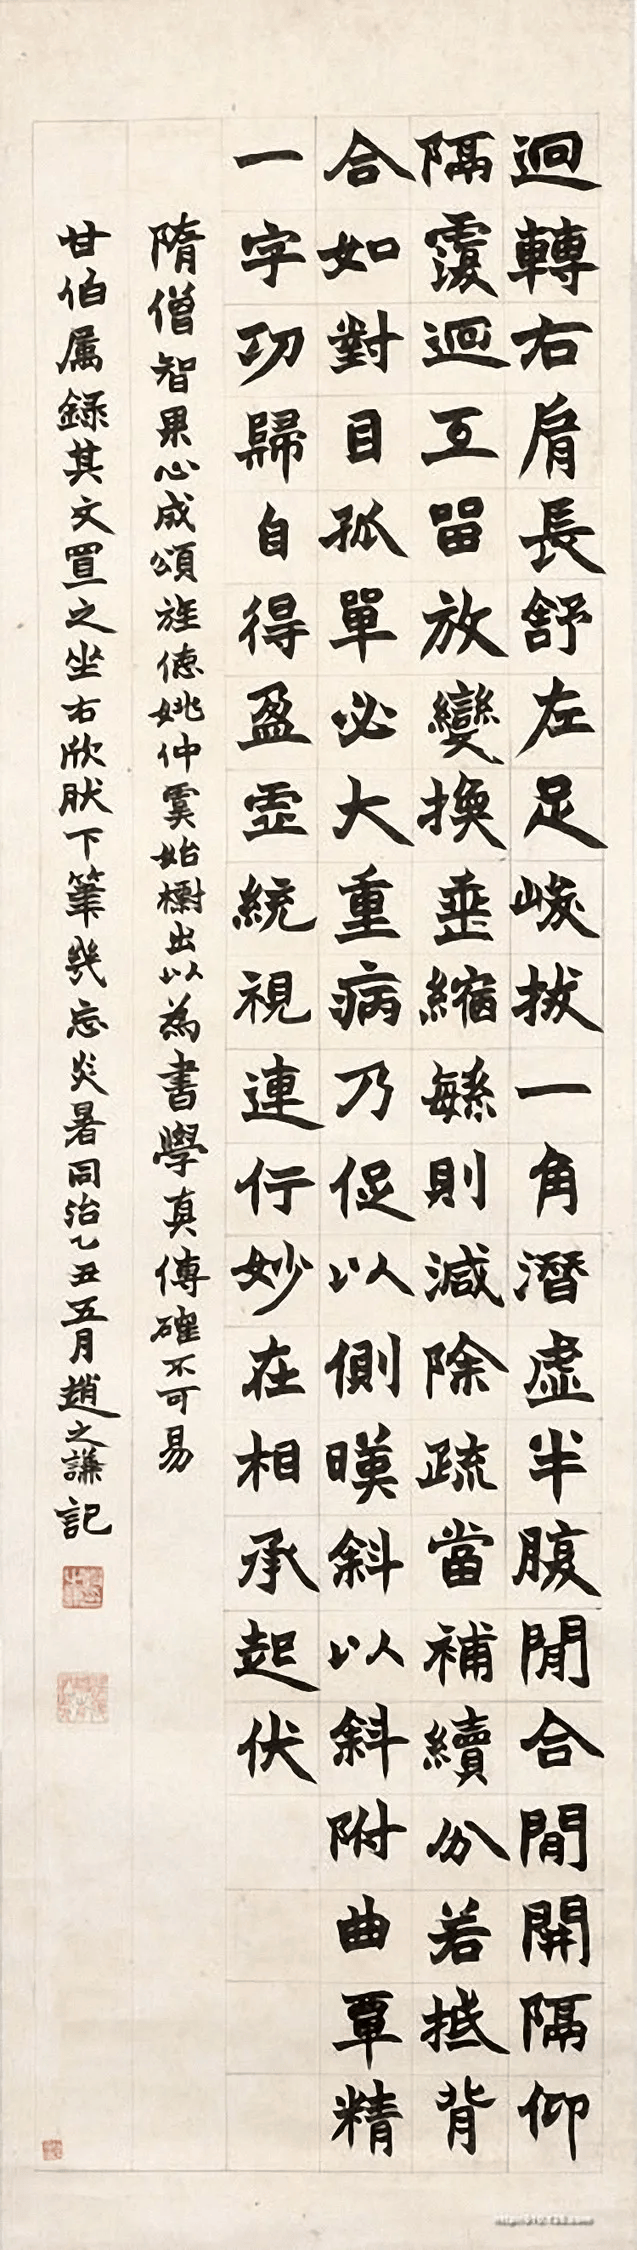 迴轉右肩長舒左足峻拔一角潛虛半腹閒合閒開隔仰
隔覆迴互留放變換垂縮繇則減除疏當補續分若抵背
合如對目孤單必大重病乃促以側暎斜以斜附曲覃精
一字功歸自得盈虛統視連行妙在相承起伏
隋僧智果心成頌旌德姚仲虞始櫥出以為書學真傳確不可易
甘伯属錄其文置之坐右欣肰下筆幾忘炎暑同治乙丑五月趙之謙記